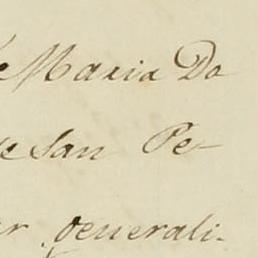 e Maria Do
e San Pe-
er generali-